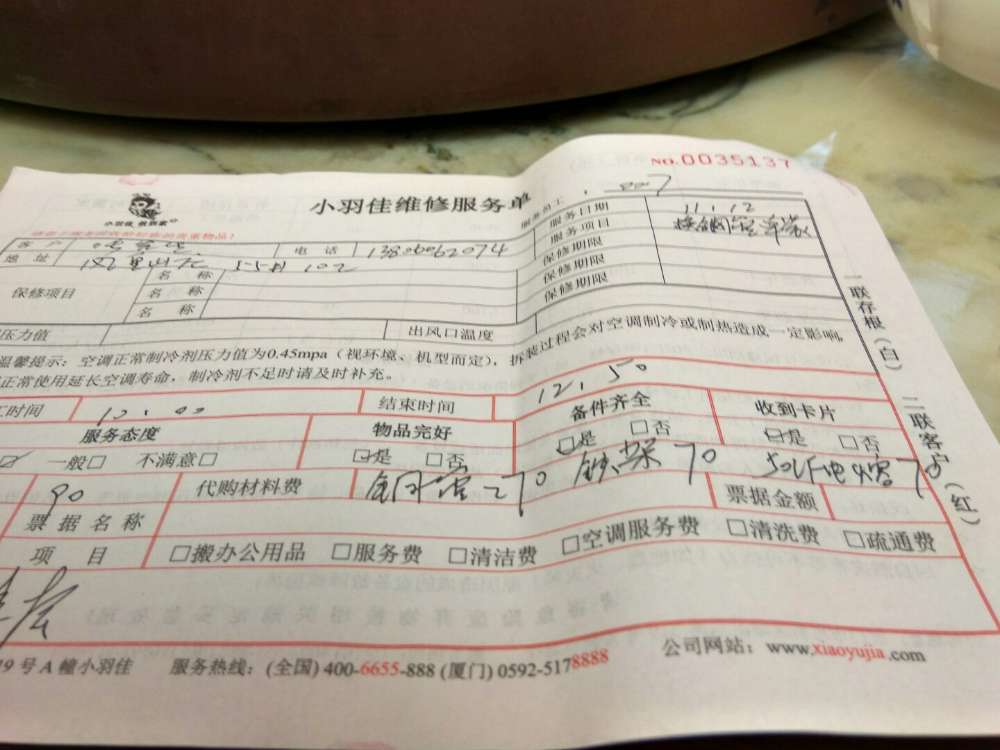 NO.0035137
小羽佳维修服务单
小羽佳 做到家
服务员工 007
客户 电话 13806062074
服务日期 11.12
地址 102
服务项目
保修期限
保修期限
保修期限
保修项目
名称
名称
名称
压力值 出风口温度
温馨提示：空调正常制冷剂压力值为0.45mpa（视环境、机型而定），拆装过程会对空调制冷或制热造成一定影响
正常使用延长空调寿命，制冷剂不足时请及时补充。
工时间 结束时间 12.50
服务态度 物品完好 备件齐全 收到卡片
一般□ 不满意□ □是 □否 □是 □否 □是 □否
90 代购材料费 铜管270 70 70
票据名称 票据金额
项目 □搬办公用品 □服务费 □清洁费 □空调服务费 □清洗费 □疏通费
一联存根（白） 二联客户（红）
9号A幢小羽佳 服务热线：(全国) 400-6655-888 (厦门) 0592-5178888 公司网站：www.xiaoyujia.com